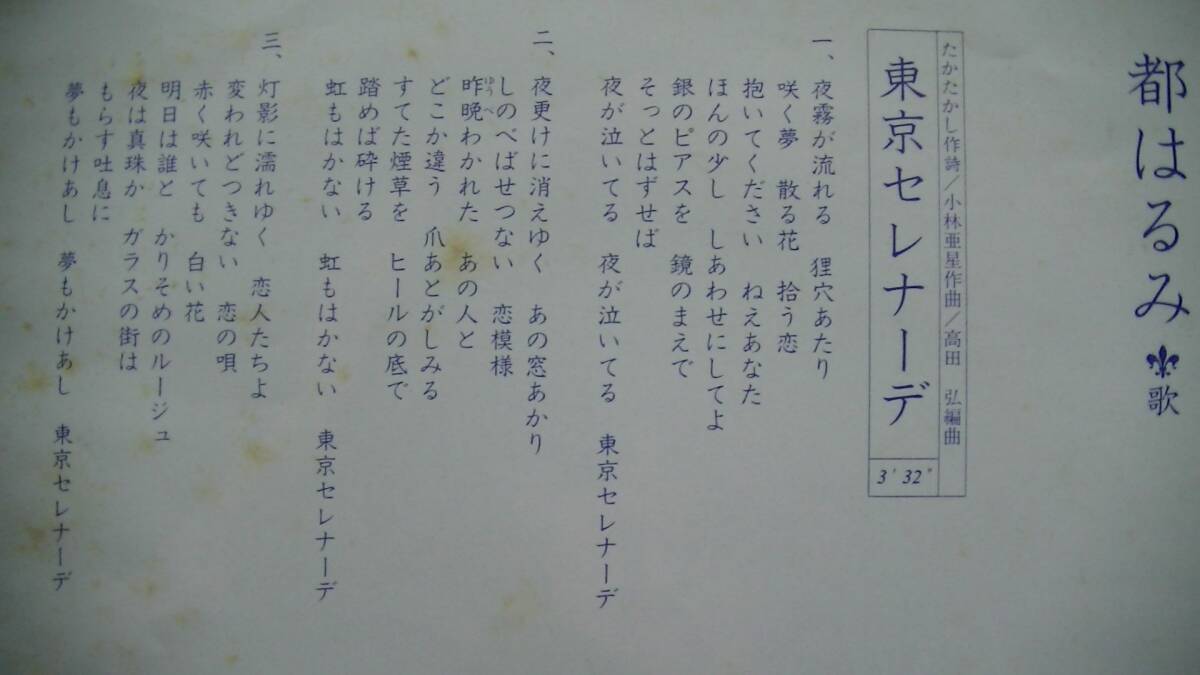 都はるみ 歌
たかたかし作詩／小林亜星作曲／高田 弘編曲
東京セレナーデ
3′32″
一、
夜霧が流れる 狸穴あたり
咲く夢 散る花 拾う恋
抱いてください ねえあなた
ほんの少し しあわせにしてよ
銀のピアスを 鏡のまえで
そっとはずせば
夜が泣いてる 夜が泣いてる 東京セレナーデ
二、
夜更けに消えゆく あの窓あかり
しのべばせつない 恋模様
昨晩わかれた あの人と
ゆうべ
どこか違う 爪あとがしみる
すてた煙草を ヒールの底で
踏めば砕ける
虹もはかない 虹もはかない 東京セレナーデ
三、
灯影に濡れゆく 恋人たちよ
変われどつきない 恋の唄
赤く咲いても 白い花
明日は誰と かりそめのルージュ
夜は真珠か ガラスの街は
もらす吐息に
夢もかけあし 夢もかけあし 東京セレナーデ